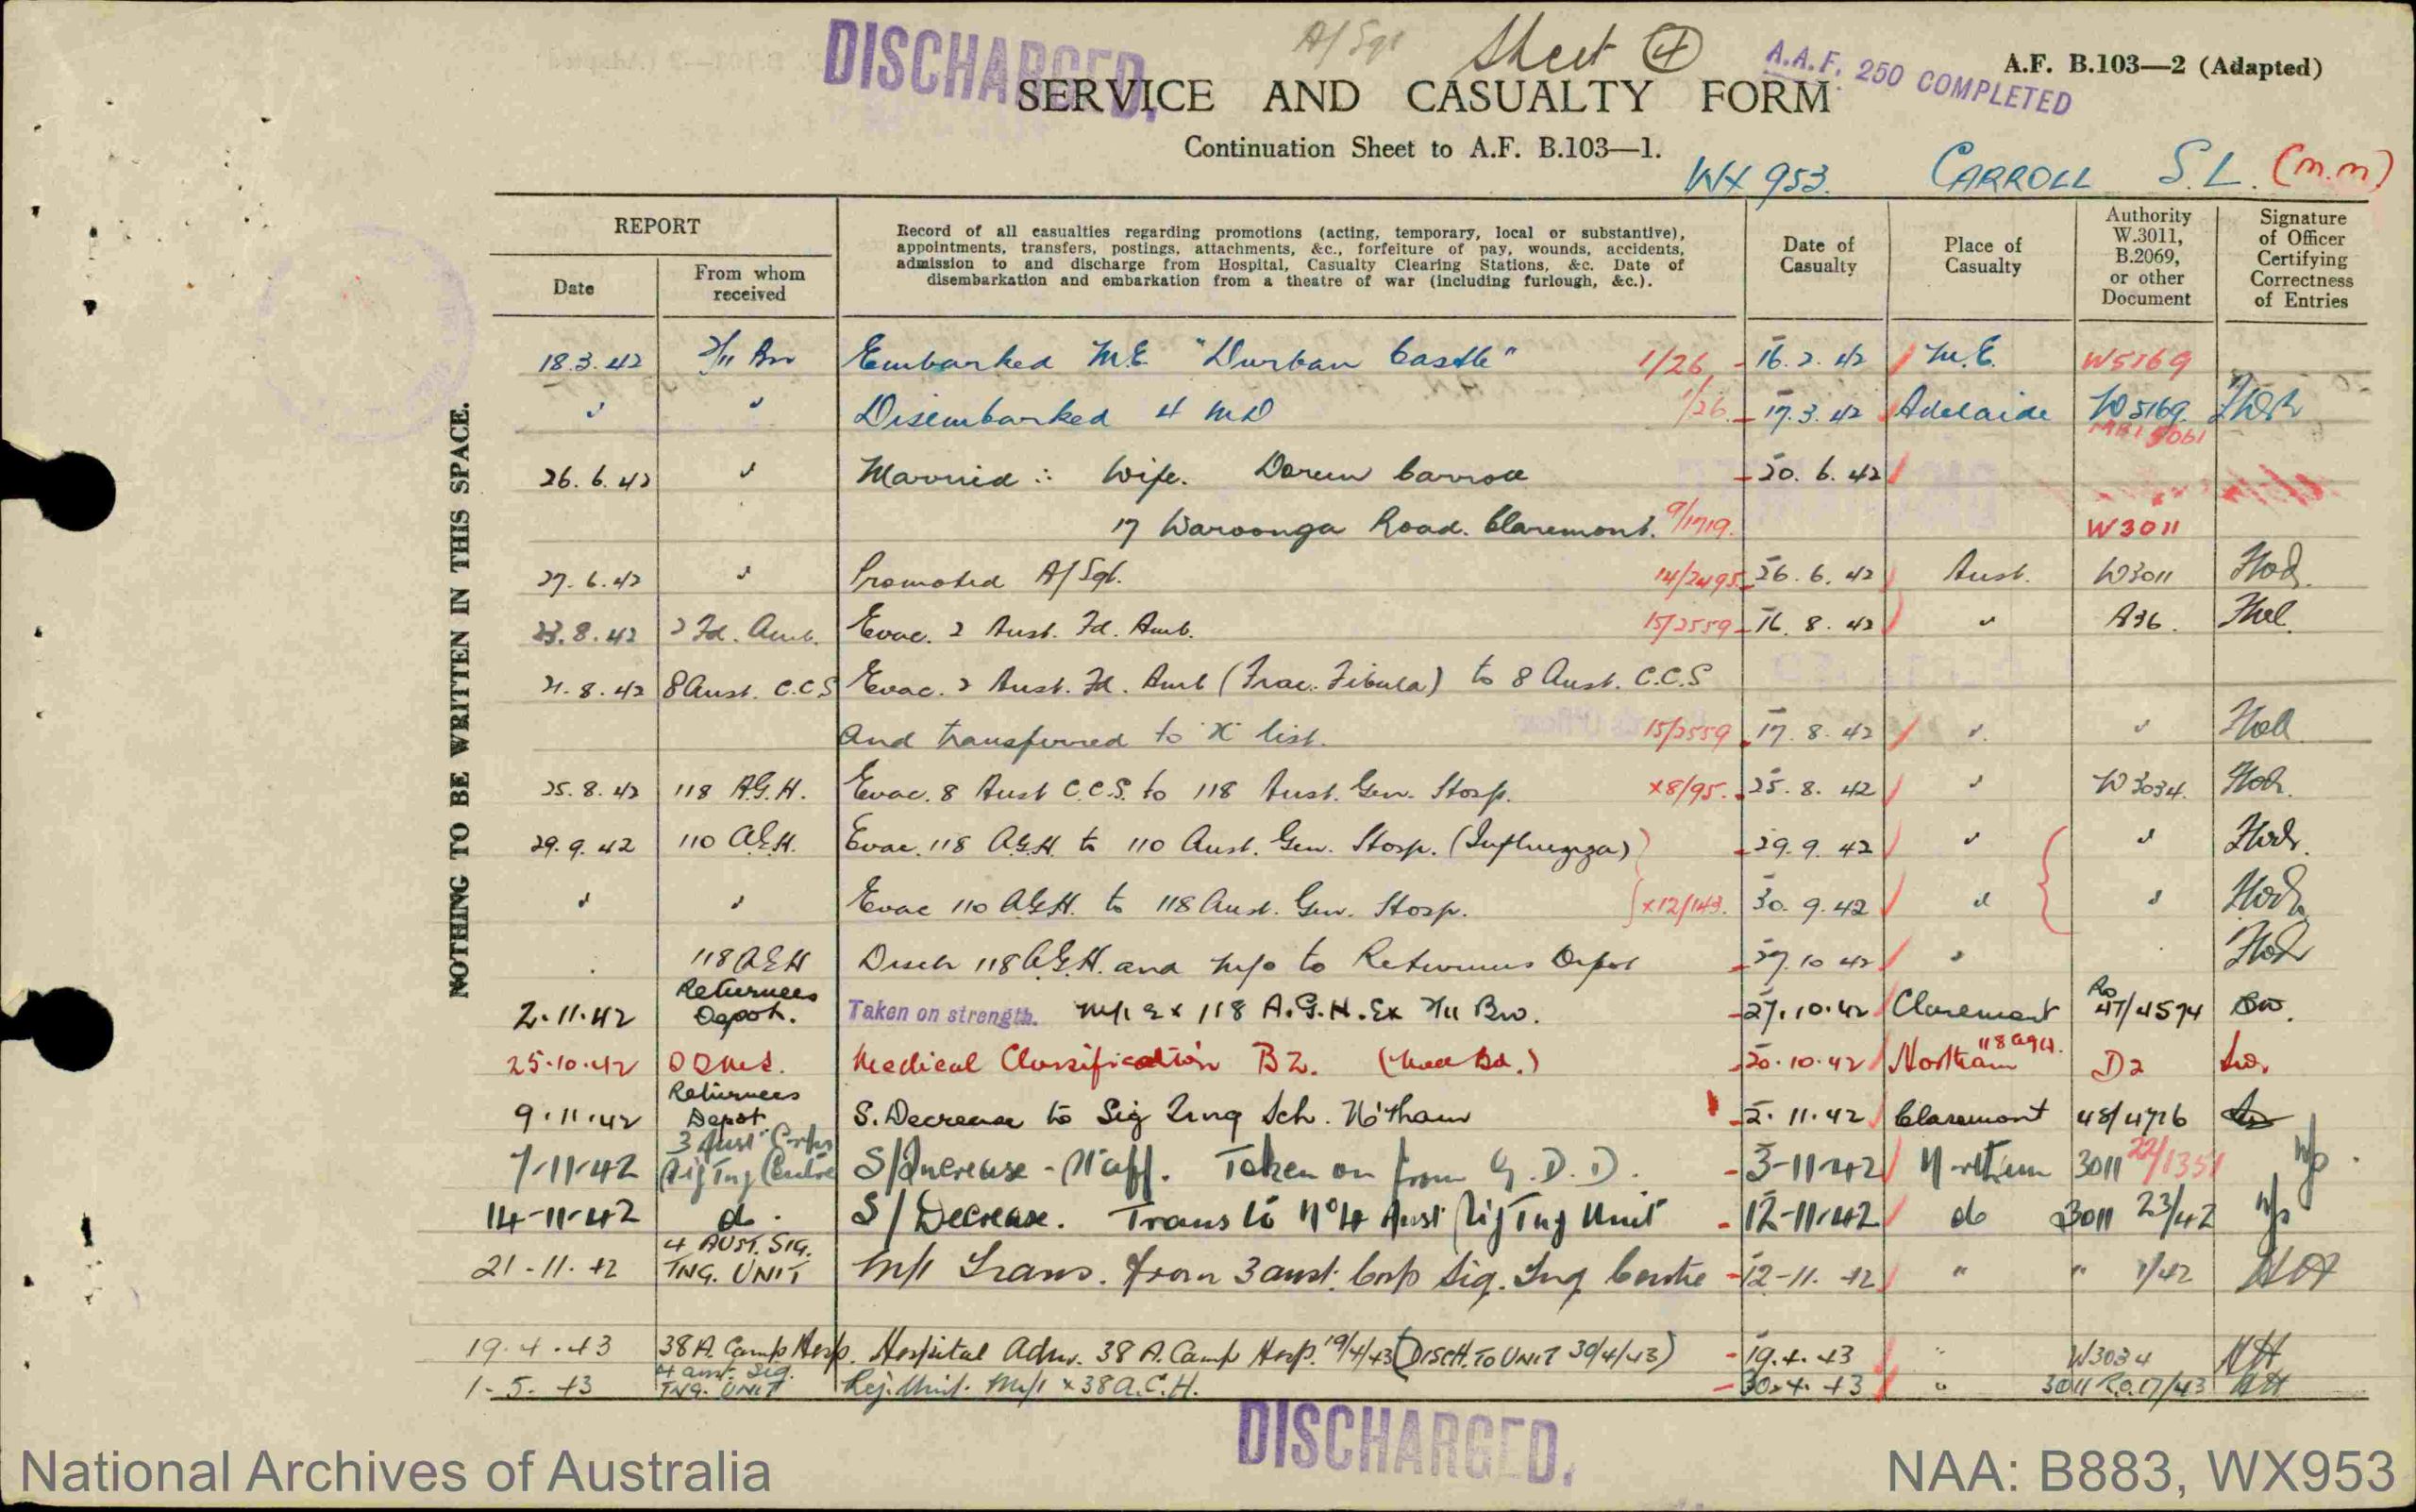 DISCHARGED.
A/Sgt
Sheet 4
A.A.F. 250 COMPLETED
A.F. B.103—2 (Adapted)
SERVICE AND CASUALTY FORM
Continuation Sheet to A.F. B.103—1.
WX 953. CARROLL S.L. (M.M)
NOTHING TO BE WRITTEN IN THIS SPACE.
REPORT
Date
From whom received
Record of all casualties regarding promotions (acting, temporary, local or substantive),
appointments, transfers, postings, attachments, &c., forfeiture of pay, wounds, accidents,
admission to and discharge from Hospital, Casualty Clearing Stations, &c. Date of
disembarkation and embarkation from a theatre of war (including furlough, &c.).
Date of Casualty
Place of Casualty
Authority W.3011, B.2069, or other Document
Signature of Officer Certifying Correctness of Entries
18.3.42 2/11 Bn Embarked M.E. "Durban Castle" 1/26 16.2.42 M.E. W5169
" " Disembarked 4 MD 1/26 17.3.42 Adelaide W5169
26.6.42 " Married :: Wife. Doreen Carroll 20.6.42
17 Waroonga Road. Claremont. 9/1719. W3011
27.6.42 " Promoted A/Sgt. 14/2495 26.6.42 Aust. W3011
23.8.42 2 Fd. Amb. Evac. 2 Aust. Fd. Amb. 15/2559 16.8.42 " A36.
21.8.42 8 Aust. C.C.S Evac. 2 Aust. Fd. Amb (Frac. Fibula) to 8 Aust. C.C.S
and transferred to "X" list. 15/2559 17.8.42 " "
25.8.42 118 A.G.H. Evac. 8 Aust C.C.S. to 118 Aust. Gen. Hosp. X8/95. 25.8.42 " W3034.
29.9.42 110 A.G.H. Evac. 118 A.G.H. to 110 Aust. Gen. Hosp. (Influenza) 29.9.42 " "
" " Evac 110 A.G.H. to 118 Aust. Gen. Hosp. X12/143. 30.9.42 " "
118 A.G.H Disch 118 A.G.H. and m/o to Returnees Depot 27.10.42 "
2.11.42 Returnees Depot. Taken on strength. m/i ex 118 A.G.H. Ex 2/11 Bn. 27.10.42 Claremont Ro 47/4574
25.10.42 DDMS. Medical Classification B2. (Med Bd.) 20.10.42 118 AGH. Northam D2
9.11.42 Returnees Depot. S. Decrease to Sig Trng Sch. No'tham 2.11.42 Claremont 48/4716
7-11-42 3 Aust Corps Sig Tng Centre S/Increase - Staff. Taken on from G.D.D. 3-11-42 Northam 3011 22/1351
14-11-42 do. S/Decrease. Trans to No 4 Aust Sig Tng Unit 12-11-42 do 3011 23/42
21-11-42 4 AUST. SIG. TNG. UNIT M/I Trans. from 3 Aust. Corp Sig. Tng Centre 12-11-42 " " 1/42
19.4.43 38 A. Camp Hosp. Hospital Adm. 38 A. Camp Hosp. 19/4/43 (DISCH. TO UNIT 30/4/43) 19.4.43 " W3034
1.5.43 4 Aust. Sig. TNG. UNIT Rej. Unit. M/I X 38 A.C.H. 30.4.43 " 3011 R.O. 17/43
DISCHARGED.
National Archives of Australia
NAA: B883, WX953